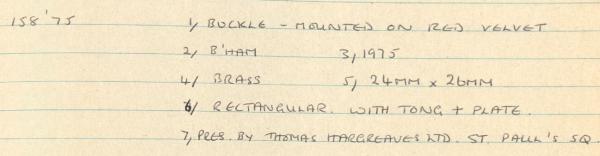 158'75 1/ BUCKLE - MOUNTED ON RED VELVET
2/ B'HAM 3/ 1975
4/ BRASS 5/ 24MM x 26MM
6/ RECTANGULAR. WITH TONG + PLATE.
7/ PRES. BY THOMAS HARGREAVES LTD. ST. PAUL'S SQ